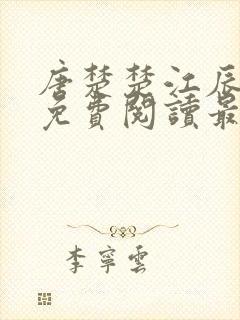 唐楚楚江辰
免費閱讀最
李寧雲